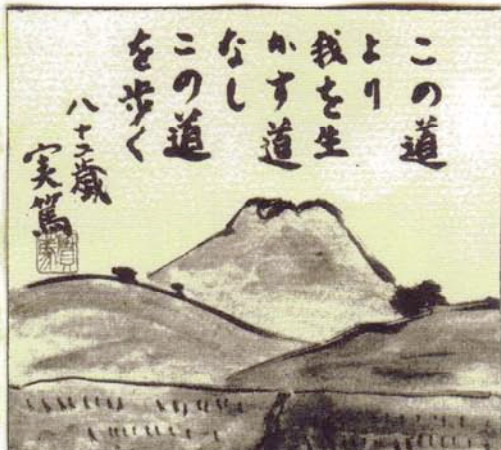 この道
より
我を生
かす道
なし
この道
を歩く
八十二歳
実篤